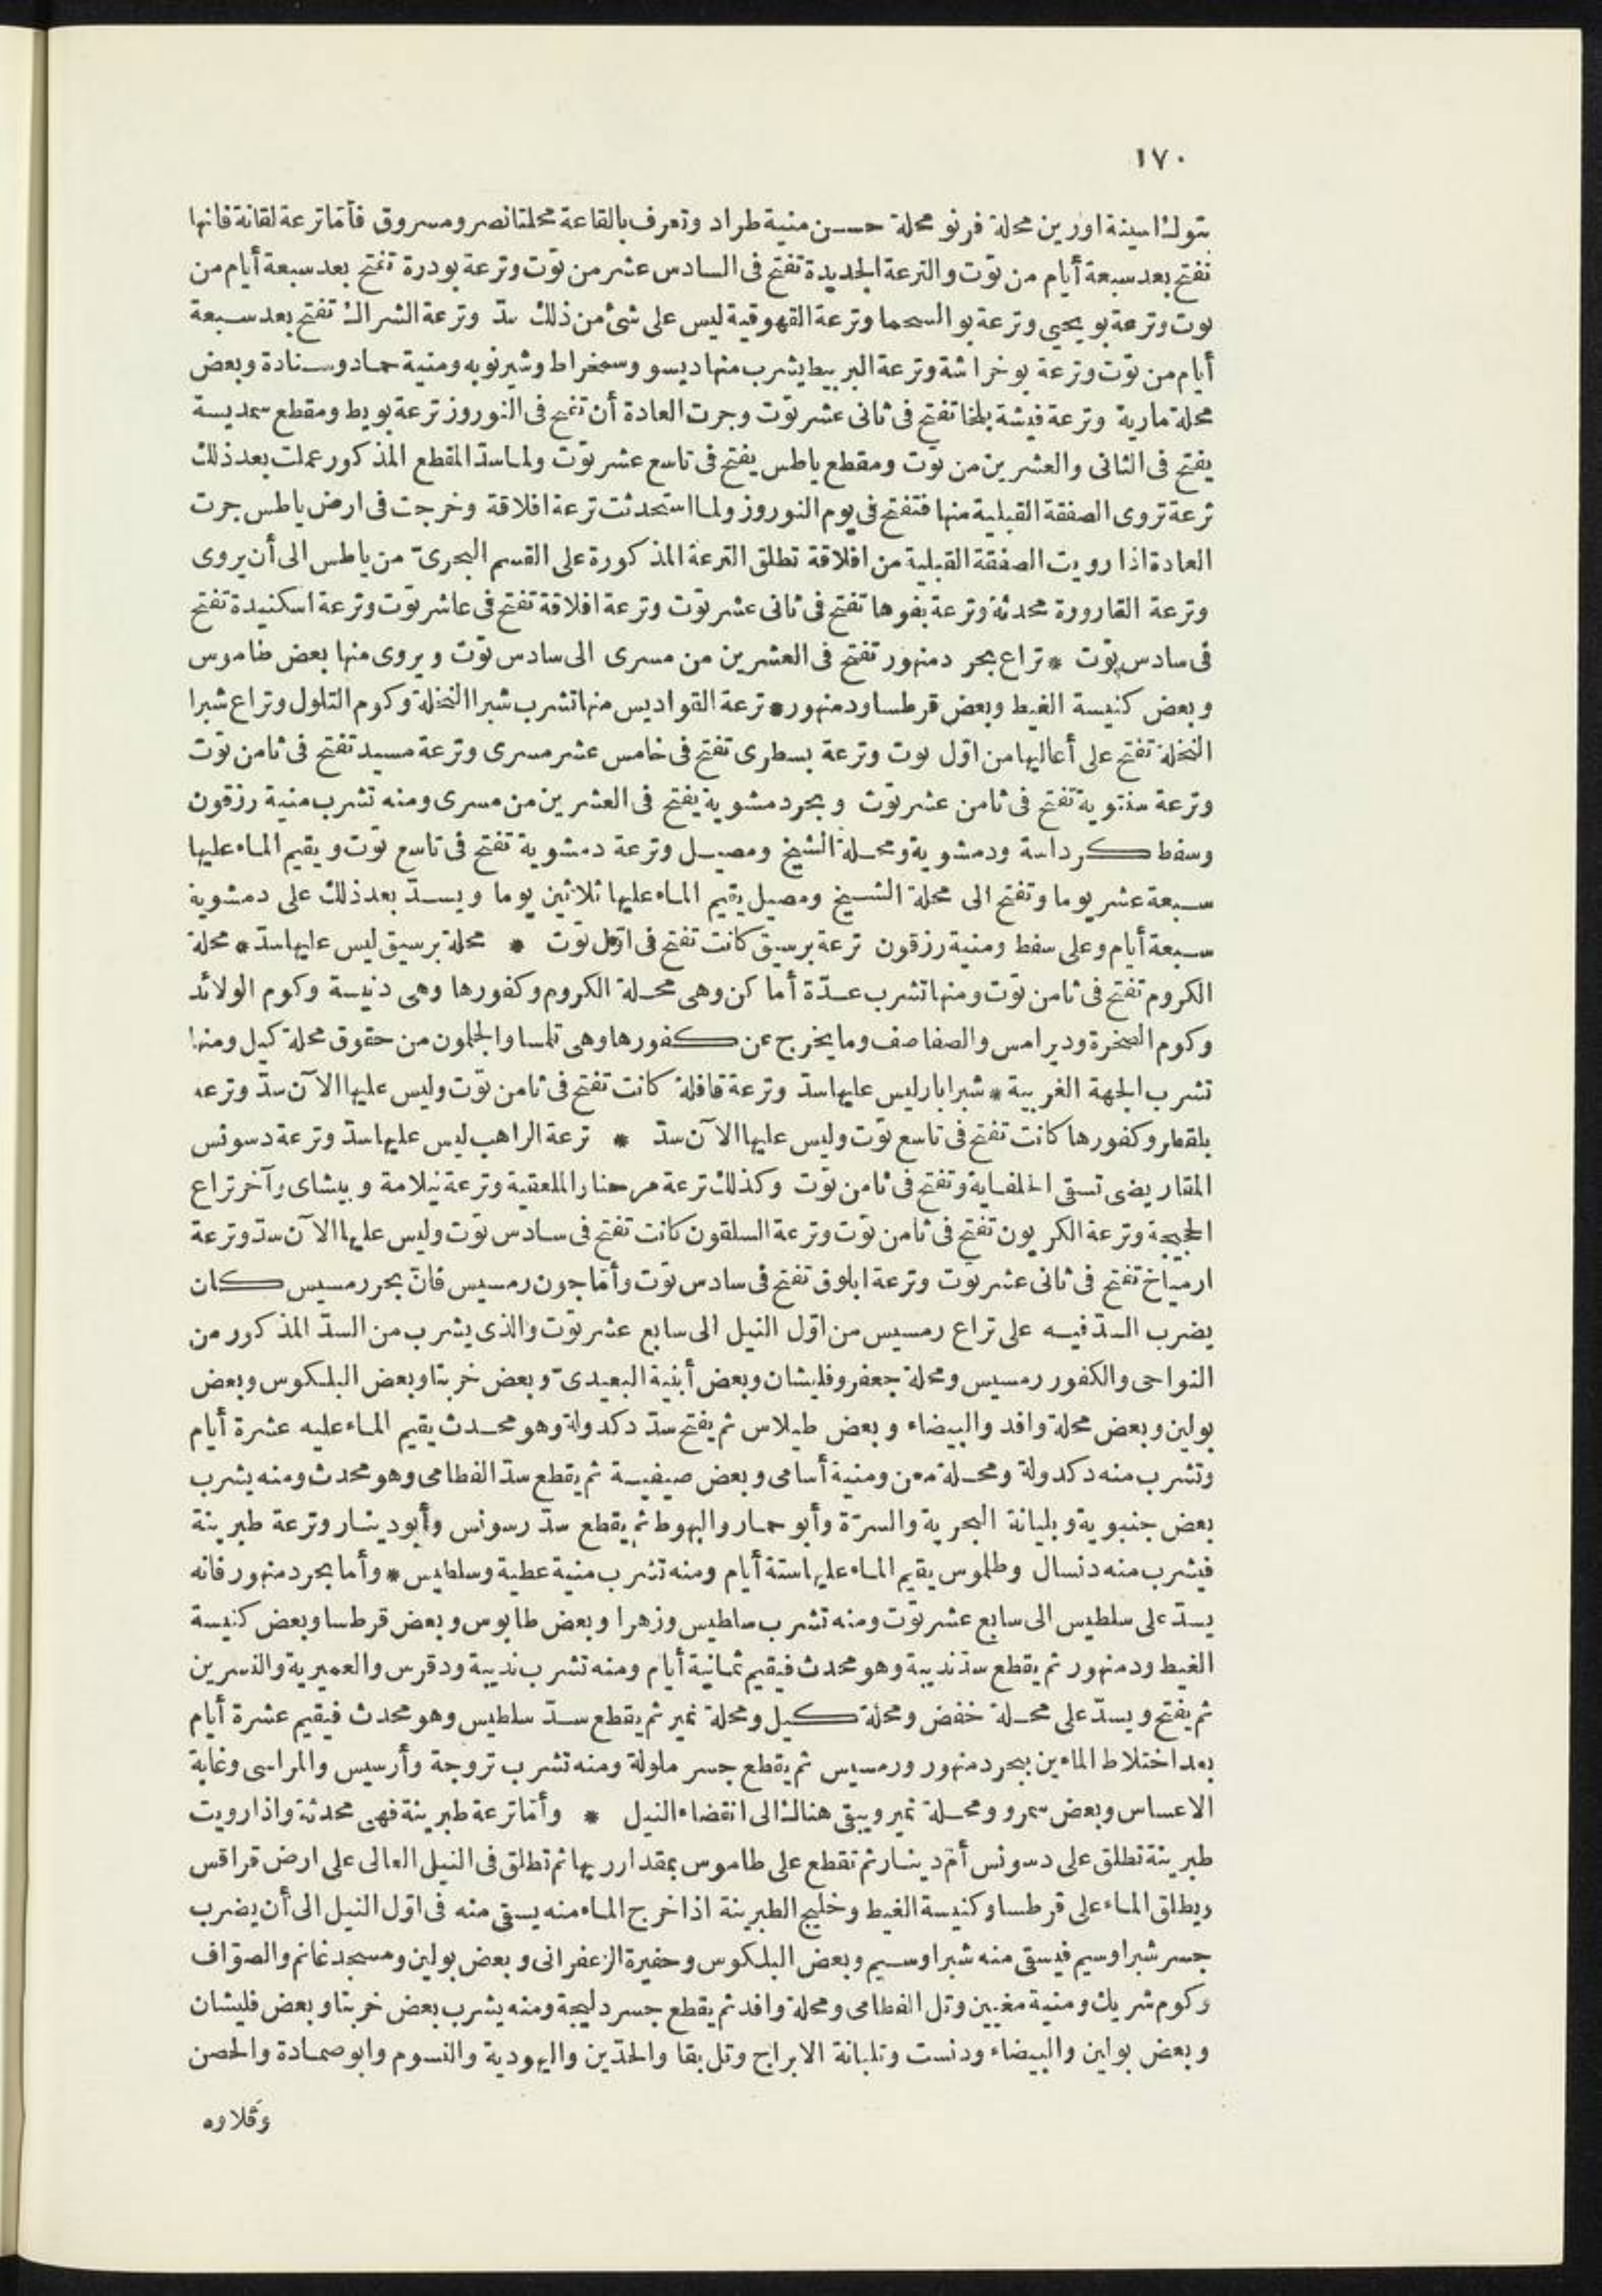 ١٧٠
بتولـٔ اسينة اورين محلة فرنو محلة حسـن منية طراد وتعرف بالقاعة محلتا نصر ومسروق فأمّا ترعة لقانة فانها
تفتح بعد سبعة أيام من توت والترعة الجديدة تفتح فى السادس عشر من توت وترعة بودرة تفتح بعد سبعة أيام من
توت وترعة بو يحيى وترعة بو السحما وترعة القهوقية ليس على شئ من ذلك سدّ وترعة الشراك تفتح بعد سبعة
أيام من توت وترعة بو خراشة وترعة البربيط يشرب منها ديسو وسمخراط وشيرنوبه ومنية حماد وسنادة وبعض
محلة مارية وترعة فيشة بلخا تفتح فى ثانى عشر توت وجرت العادة أن تفتح فى النوروز ترعة بويط ومقطع سمديسة
يفتح فى الثانى والعشرين من توت ومقطع ياطس يفتح فى تاسع عشر توت ولما سدّ المقطع المذكور عملت بعد ذلك
ترعة تروى الصفقة القبلية منها فتفتح فى يوم النوروز ولما استحدثت ترعة افلاقة وخرجت فى ارض ياطس جرت
العادة اذا رويت الصفقة القبلية من افلاقة تطلق الترعة المذكورة على القسم البحرىّ من ياطس الى أن يروى
وترعة القارورة محدثة وترعة بفوها تفتح فى ثانى عشر توت وترعة افلاقة تفتح فى عاشر توت وترعة اسكنيدة تفتح
فى سادس توت * تراع بحر دمنهور تفتح فى العشرين من مسرى الى سادس توت ويروى منها بعض طاموس
وبعض كنيسة الغيط وبعض قرطسا ودمنهور * ترعة القواديس منها تشرب شبرا النخلة وكوم التلول وتراع شبرا
النخلة تفتح على أعاليها من اوّل توت وترعة بسطرى تفتح فى خامس عشر مسرى وترعة مسيد تفتح فى ثامن توت
وترعة سنتوية تفتح فى ثامن عشر توت وبحر دمشوية يفتح فى العشرين من مسرى ومنه تشرب منية رزقون
وسفط كرداسة ودمشوية ومحلة الشيخ ومصيل وترعة دمشوية تفتح فى تاسع توت ويقيم الماء عليها
سبعة عشر يوما وتفتح الى محلة الشيخ ومصيل يقيم الماء عليها ثلاثين يوما ويسدّ بعد ذلك على دمشوية
سبعة أيام وعلى سفط ومنية رزقون ترعة برسيق كانت تفتح فى اوّل توت * محلة برسيق ليس عليها سدّ * محلة
الكروم تفتح فى ثامن توت ومنها تشرب عدّة أماكن وهى محلة الكروم وكفورها وهى دنيسة وكوم الولائد
وكوم الصخرة ودير امس والصفاصف وما يخرج عن كفورها وهى تلمسا والجلمون من حقوق محلة كيل ومنها
تشرب الجهة الغربية * شبرابار ليس عليها سدّ وترعة قافلة كانت تفتح فى ثامن توت وليس عليها الآن سدّ وترعه
بلقطر وكفورها كانت تفتح فى تاسع توت وليس عليها الآن سدّ * ترعة الراهب ليس عليها سدّ وترعة دسونس
المقاريضى تسقى الحلفاية وتفتح فى ثامن توت وكذلك ترعة مرحنا را الملعقية وترعة نيلامة وبيشاى وآخر تراع
الجيجة وترعة الكريون تفتح فى ثامن توت وترعة السلقون كانت تفتح فى سادس توت وليس عليها الآن سدّ وترعة
ارمياخ تفتح فى ثانى عشر توت وترعة ابلوق تفتح فى سادس توت وأمّا جون رمسيس فانّ بحر رمسيس كان
يضرب السدّ فيه على تراع رمسيس من اوّل النيل الى سابع عشر توت والذى يشرب من السدّ المذكور من
النواحى والكفور رمسيس ومحلة جعفر وفليشان وبعض أبنية البعيدىّ وبعض خربتا وبعض البلكوس وبعض
بولين وبعض محلة وافد والبيضاء وبعض طيلاس ثم يفتح سدّ دكدولة وهو محدث يقيم الماء عليه عشرة أيام
وتشرب منه دكدولة ومحلة معن ومنية أسامى وبعض صيفية ثم يقطع سدّ الفطامى وهو محدث ومنه يشرب
بعض جنبوية وبليانة البحرية والسرّة وأبو حمار والبهوط ثم يقطع سدّ رسونس وأبو دينار وترعة طبرينة
فيشرب منه دنسال وطلموس يقيم الماء عليها ستة أيام ومنه تشرب منية عطية وسلطيس * وأما بحر دمنهور فانه
يسدّ على سلطيس الى سابع عشر توت ومنه تشرب سلطيس وزهرا وبعض طابوس وبعض قرطسا وبعض كنيسة
الغيط ودمنهور ثم يقطع سدّ نديبة وهو محدث فيقيم ثمانية أيام ومنه تشرب نديبة ودقرس والعميرية والنسرين
ثم يفتح ويسدّ على محلة خفض ومحلة كيل ومحلة نمير ثم يقطع سدّ سلطيس وهو محدث فيقيم عشرة أيام
بعد اختلاط الماءين ببحر دمنهور ورمسيس ثم يقطع جسر ملولة ومنه تشرب تروجة وأرسيس والمراسى وغابة
الاعساس وبعض سمرو ومحلة نمير ويبقى هناك الى انقضاء النيل * وأمّا ترعة طبرينة فهى محدثة واذا رويت
طبرينة تطلق على دسونس أمّ دينار ثم تقطع على طاموس بمقدار ريها ثم تطلق فى النيل العالى على ارض قراقس
ويطلق الماء على قرطسا وكنيسة الغيط وخليج الطبرينة اذا خرج الماء منه يسقى منه فى اوّل النيل الى أن يضرب
جسر شبرا وسيم فيسقى منه شبرا وسيم وبعض البلكوس وحفيرة الزعفرانى وبعض بولين ومسجد غانم والصوّاف
وكوم شريك ومنية مغيين وتل الفطامى ومحلة وافد ثم يقطع جسر دليجة ومنه يشرب بعض خربتا وبعض فليشان
وبعض بولين والبيضاء ودنست وتلبانة الابراج وتل بقا والحدّين واليهودية والنسوم وابو صمادة والحصن
وقلاوه